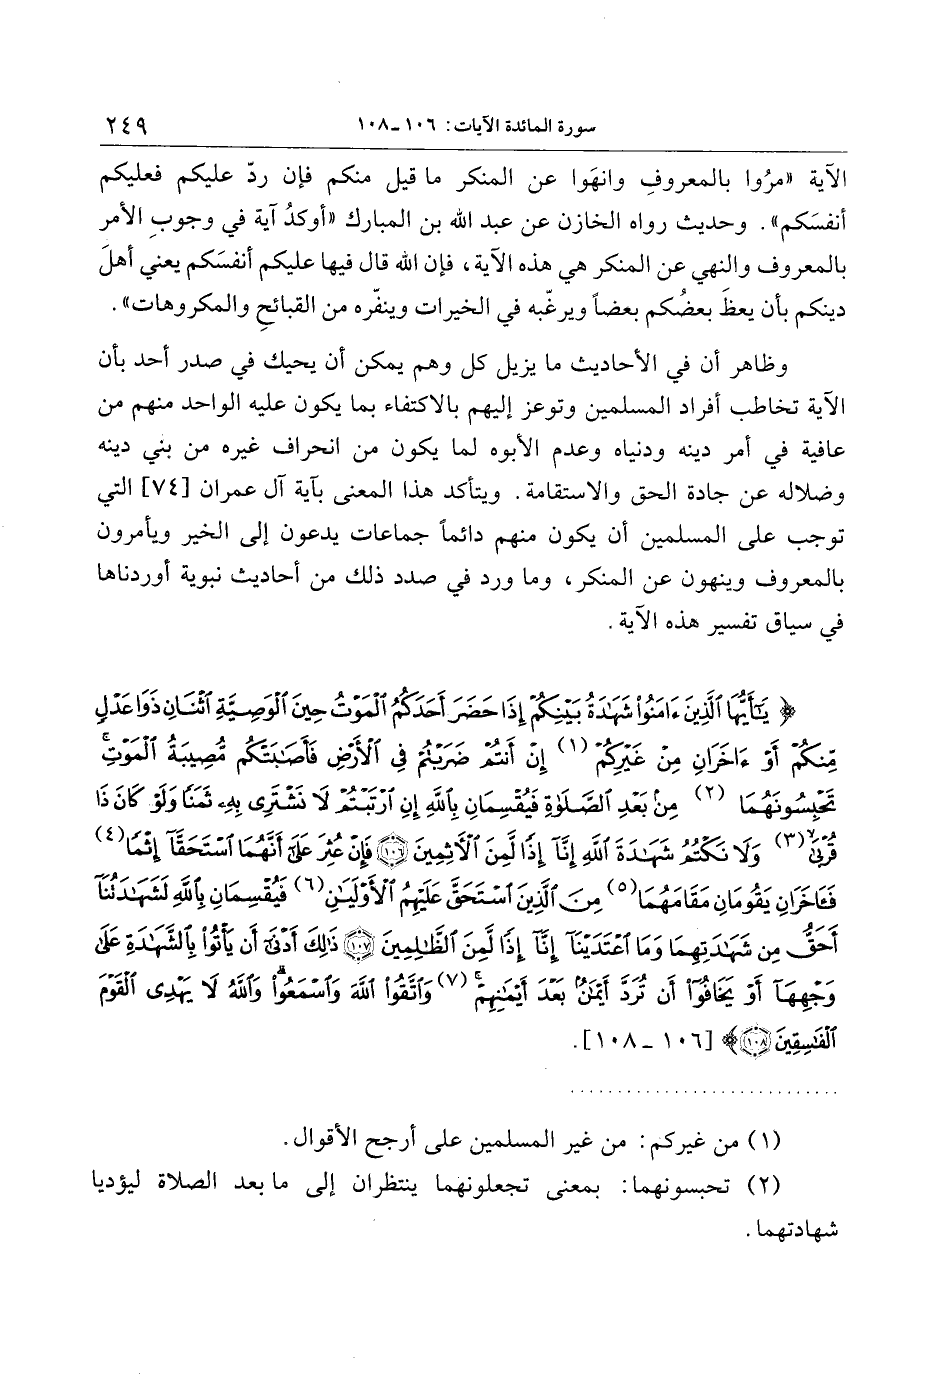 سورة المائدة الآيات: ١٠٦-١٠٨
٢٤٩
الآية «مرُوا بالمعروفِ وانهَوا عن المنكر ما قيل منكم فإن ردّ عليكم فعليكم
أنفسَكم». وحديث رواه الخازن عن عبد الله بن المبارك «أوكدُ آية في وجوبِ الأمر
بالمعروف والنهي عن المنكر هي هذه الآية، فإن الله قال فيها عليكم أنفسَكم يعني أهلَ
دينكم بأن يعظَ بعضُكم بعضاً ويرغّبه في الخيرات وينفّره من القبائحِ والمكروهات».
وظاهر أن في الأحاديث ما يزيل كل وهم يمكن أن يحيك في صدر أحد بأن
الآية تخاطب أفراد المسلمين وتوعز إليهم بالاكتفاء بما يكون عليه الواحد منهم من
عافية في أمر دينه ودنياه وعدم الأبوه لما يكون من انحراف غيره من بني دينه
وضلاله عن جادة الحق والاستقامة. ويتأكد هذا المعنى بآية آل عمران [٧٤] التي
توجب على المسلمين أن يكون منهم دائماً جماعات يدعون إلى الخير ويأمرون
بالمعروف وينهون عن المنكر، وما ورد في صدد ذلك من أحاديث نبوية أوردناها
في سياق تفسير هذه الآية.
﴿ يَٰٓأَيُّهَا ٱلَّذِينَ ءَامَنُوا۟ شَهَٰدَةُ بَيْنِكُمْ إِذَا حَضَرَ أَحَدَكُمُ ٱلْمَوْتُ حِينَ ٱلْوَصِيَّةِ ٱثْنَانِ ذَوَا عَدْلٍ
مِّنكُمْ أَوْ ءَاخَرَانِ مِنْ غَيْرِكُمْ (١) إِنْ أَنتُمْ ضَرَبْتُمْ فِى ٱلْأَرْضِ فَأَصَٰبَتْكُم مُّصِيبَةُ ٱلْمَوْتِ ۚ
تَحْبِسُونَهُمَا (٢) مِنۢ بَعْدِ ٱلصَّلَوٰةِ فَيُقْسِمَانِ بِٱللَّهِ إِنِ ٱرْتَبْتُمْ لَا نَشْتَرِى بِهِۦ ثَمَنًا وَلَوْ كَانَ ذَا
قُرْبَىٰ ۙ (٣) وَلَا نَكْتُمُ شَهَٰدَةَ ٱللَّهِ إِنَّآ إِذًا لَّمِنَ ٱلْءَاثِمِينَ ١٠٦ فَإِنْ عُثِرَ عَلَىٰٓ أَنَّهُمَا ٱسْتَحَقَّآ إِثْمًا (٤)
فَـَٔاخَرَانِ يَقُومَانِ مَقَامَهُمَا (٥) مِنَ ٱلَّذِينَ ٱسْتَحَقَّ عَلَيْهِمُ ٱلْأَوْلَيَٰنِ (٦) فَيُقْسِمَانِ بِٱللَّهِ لَشَهَٰدَتُنَآ
أَحَقُّ مِن شَهَٰدَتِهِمَا وَمَا ٱعْتَدَيْنَآ إِنَّآ إِذًا لَّمِنَ ٱلظَّٰلِمِينَ ١٠٧ ذَٰلِكَ أَدْنَىٰٓ أَن يَأْتُوا۟ بِٱلشَّهَٰدَةِ عَلَىٰ
وَجْهِهَآ أَوْ يَخَافُوٓا۟ أَن تُرَدَّ أَيْمَٰنٌۢ بَعْدَ أَيْمَٰنِهِمْ ۗ (٧) وَٱتَّقُوا۟ ٱللَّهَ وَٱسْمَعُوا۟ ۗ وَٱللَّهُ لَا يَهْدِى ٱلْقَوْمَ
ٱلْفَٰسِقِينَ ١٠٨ ﴾ [١٠٦ - ١٠٨].
(١) من غيركم: من غير المسلمين على أرجح الأقوال.
(٢) تحبسونهما: بمعنى تجعلونهما ينتظران إلى ما بعد الصلاة ليؤديا
شهادتهما.